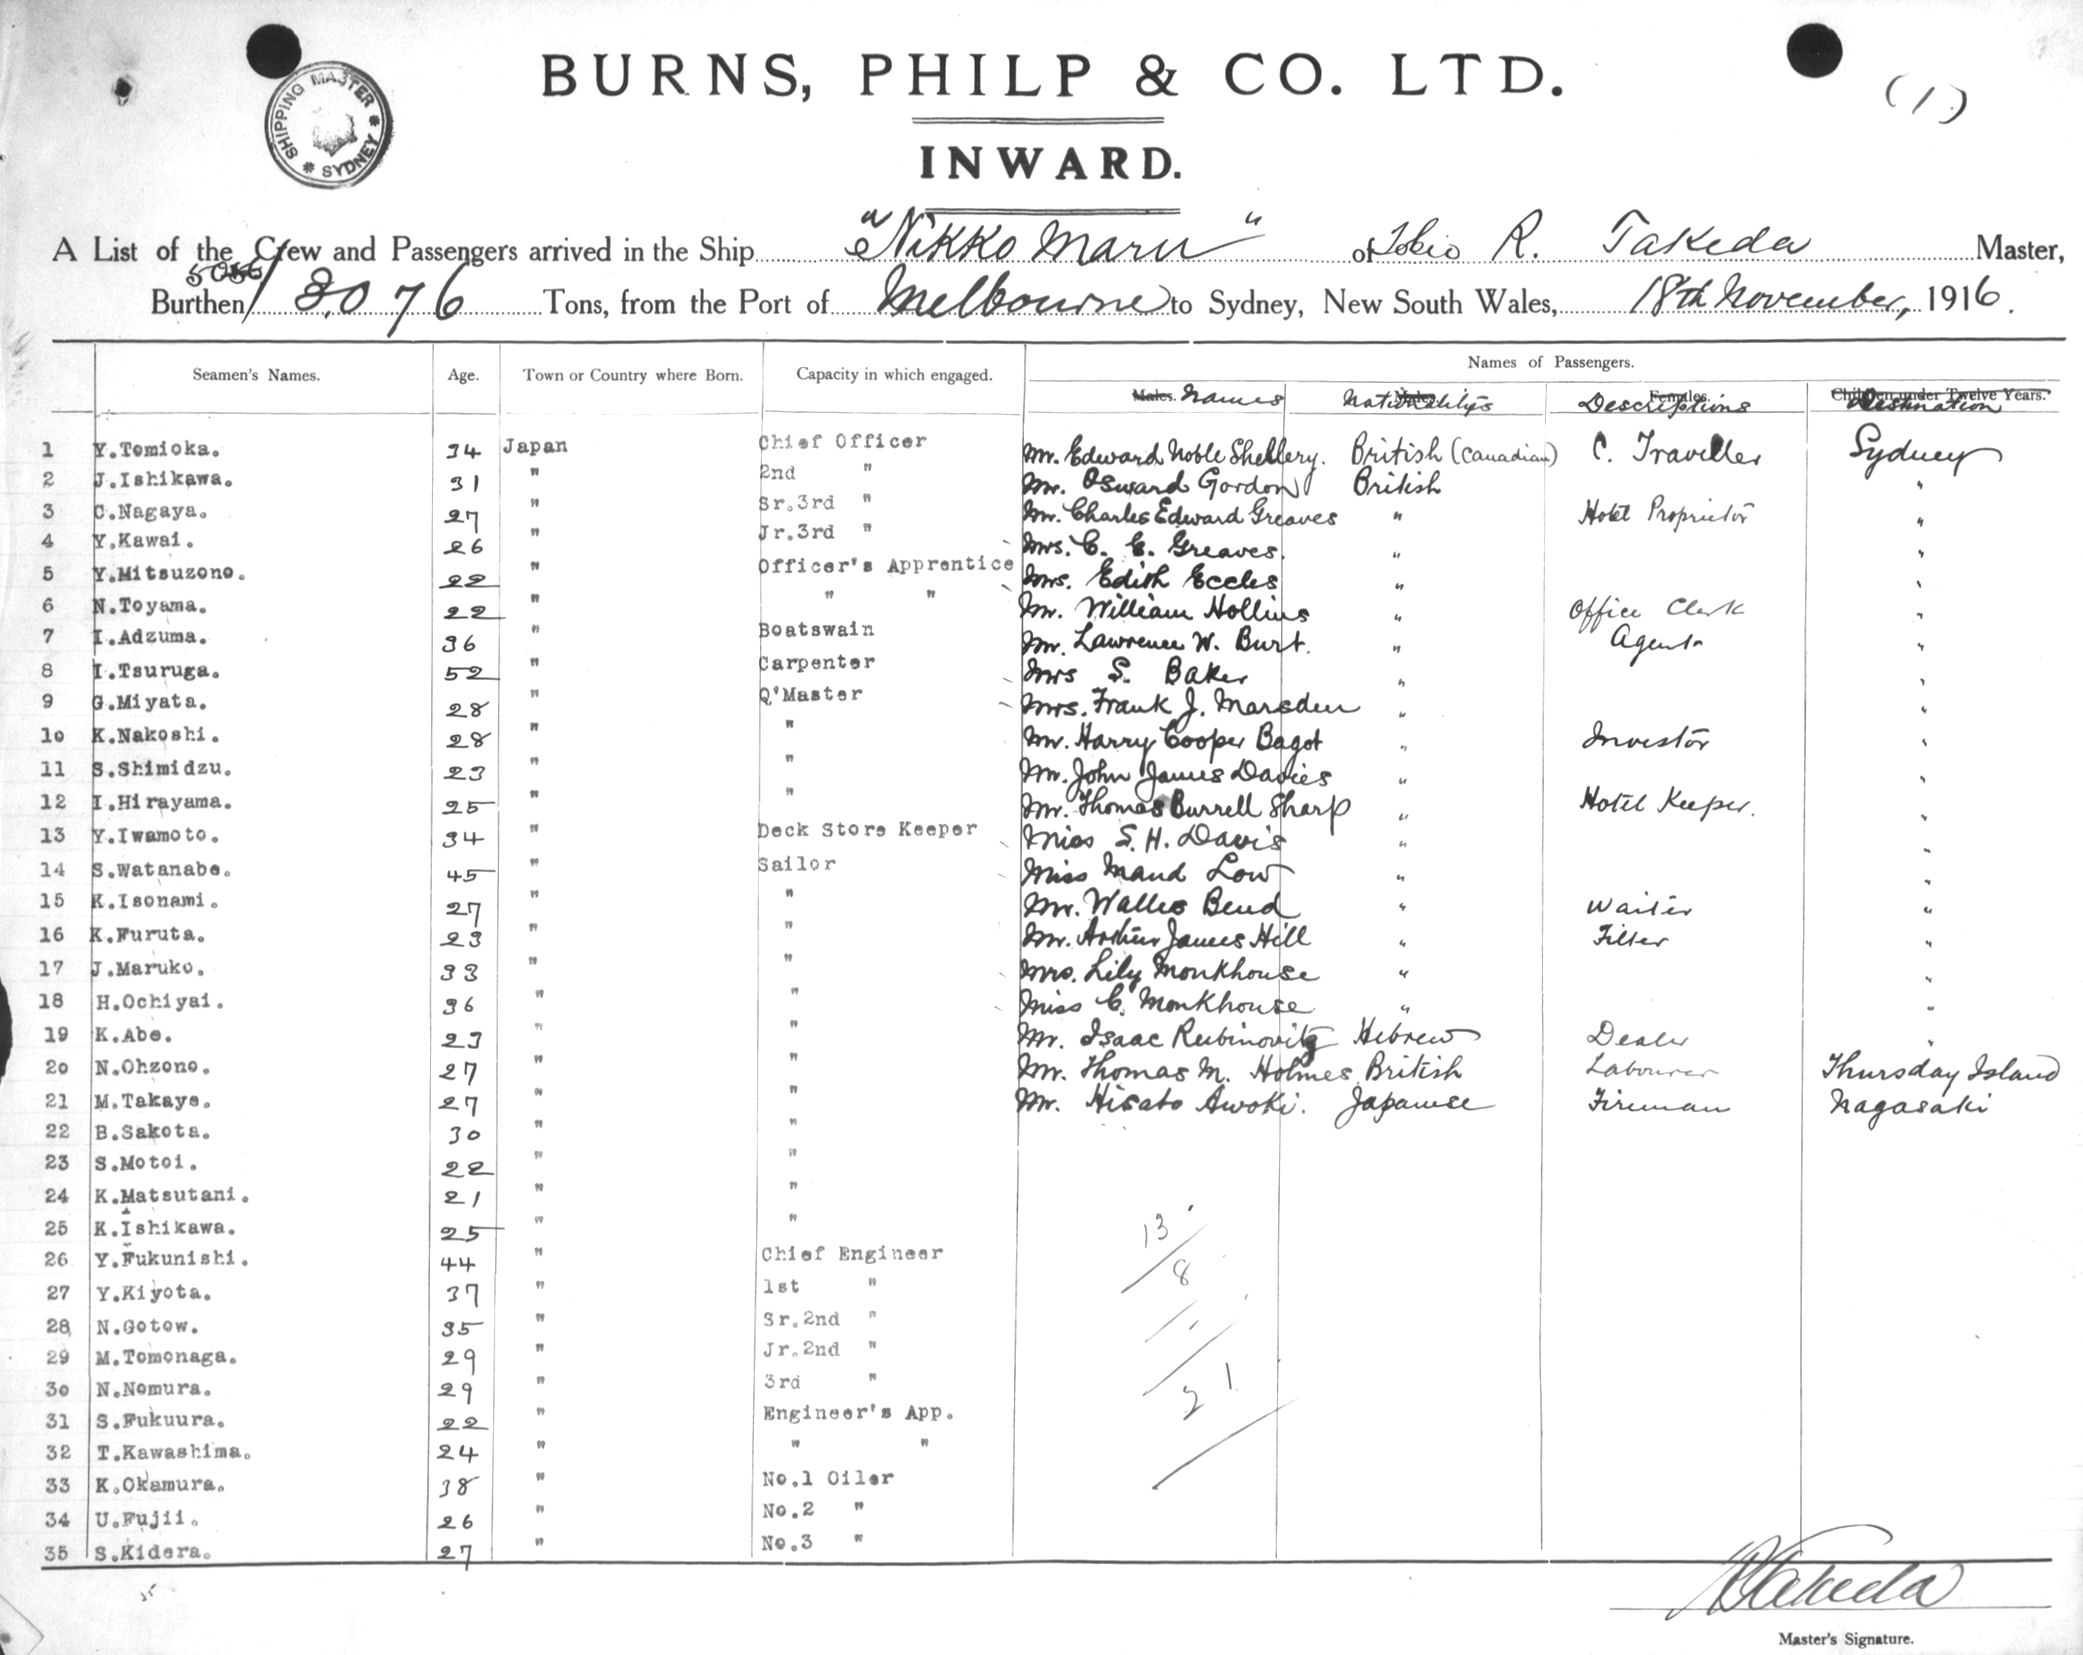 BURNS, PHILP & CO. LTD.
(1)
SHIPPING MASTER * SYDNEY *
INWARD.
A List of the Crew and Passengers arrived in the Ship "Nikko Maru" of Tokio R. Takeda Master,
Burthen 3076 Tons, from the Port of Melbourne to Sydney, New South Wales, 18th November, 1916.
Seamen's Names. Age. Town or Country where Born. Capacity in which engaged. Names of Passengers.
Males. Names Nationalitys Females. Descriptions Children under Twelve Years. Destination
1 Y.Tomioka. 34 Japan Chief Officer Mr. Edward Noble Shellery. British (Canadian) C. Traveller Sydney
2 J.Ishikawa. 31 " 2nd " Mr. Osward Gordon British "
3 C.Nagaya. 27 " Sr.3rd " Mr. Charles Edward Greaves " Hotel Proprietor "
4 Y.Kawai. 26 " Jr.3rd " Mrs. C. E. Greaves. " "
5 Y.Mitsuzono. 22 " Officer's Apprentice Mrs. Edith Eccles " "
6 N.Toyama. 22 " " " Mr. William Hollins " Office Clerk "
7 I.Adzuma. 36 " Boatswain Mr. Lawrence W. Burt. " Agent "
8 I.Tsuruga. 52 " Carpenter Mrs S. Baker " "
9 G.Miyata. 28 " Q'Master Mrs. Frank J. Marsden " "
10 K.Nakoshi. 28 " " Mr. Harry Cooper Bagot " Investor "
11 S.Shimidzu. 23 " " Mr. John James Davies " "
12 I.Hirayama. 25 " " Mr. Thomas Burrell Sharp " Hotel Keeper. "
13 Y.Iwamoto. 34 " Deck Store Keeper Miss S. H. Davis " "
14 S.Watanabe. 45 " Sailor Miss Maud Low " "
15 K.Isonami. 27 " " Mr. Wallis Bend " Waiter "
16 K.Furuta. 23 " " Mr. Arthur James Hill " Fitter "
17 J.Maruko. 33 " " Mrs. Lily Monkhouse " "
18 H.Ochiyai. 36 " " Miss C. Monkhouse " "
19 K.Abe. 23 " " Mr. Isaac Rubinovitz Hebrew Dealer "
20 N.Ohzono. 27 " " Mr. Thomas M. Holmes British Labourer Thursday Island
21 M.Takaye. 27 " " Mr. Hisato Awoki. Japanese Fireman Nagasaki
22 B.Sakota. 30 " "
23 S.Motoi. 22 " "
24 K.Matsutani. 21 " "
25 K.Ishikawa. 25 " "
26 Y.Fukunishi. 44 " Chief Engineer
27 Y.Kiyota. 37 " 1st "
28 N.Gotow. 35 " Sr.2nd "
29 M.Tomonaga. 29 " Jr.2nd "
30 N.Nomura. 29 " 3rd "
31 S.Fukuura. 22 " Engineer's App.
32 T.Kawashima. 24 " " "
33 K.Okamura. 38 " No.1 Oiler
34 U.Fujii. 26 " No.2 "
35 S.Kidera. 27 " No.3 "
13
8
21
35
R Takeda
Master's Signature.